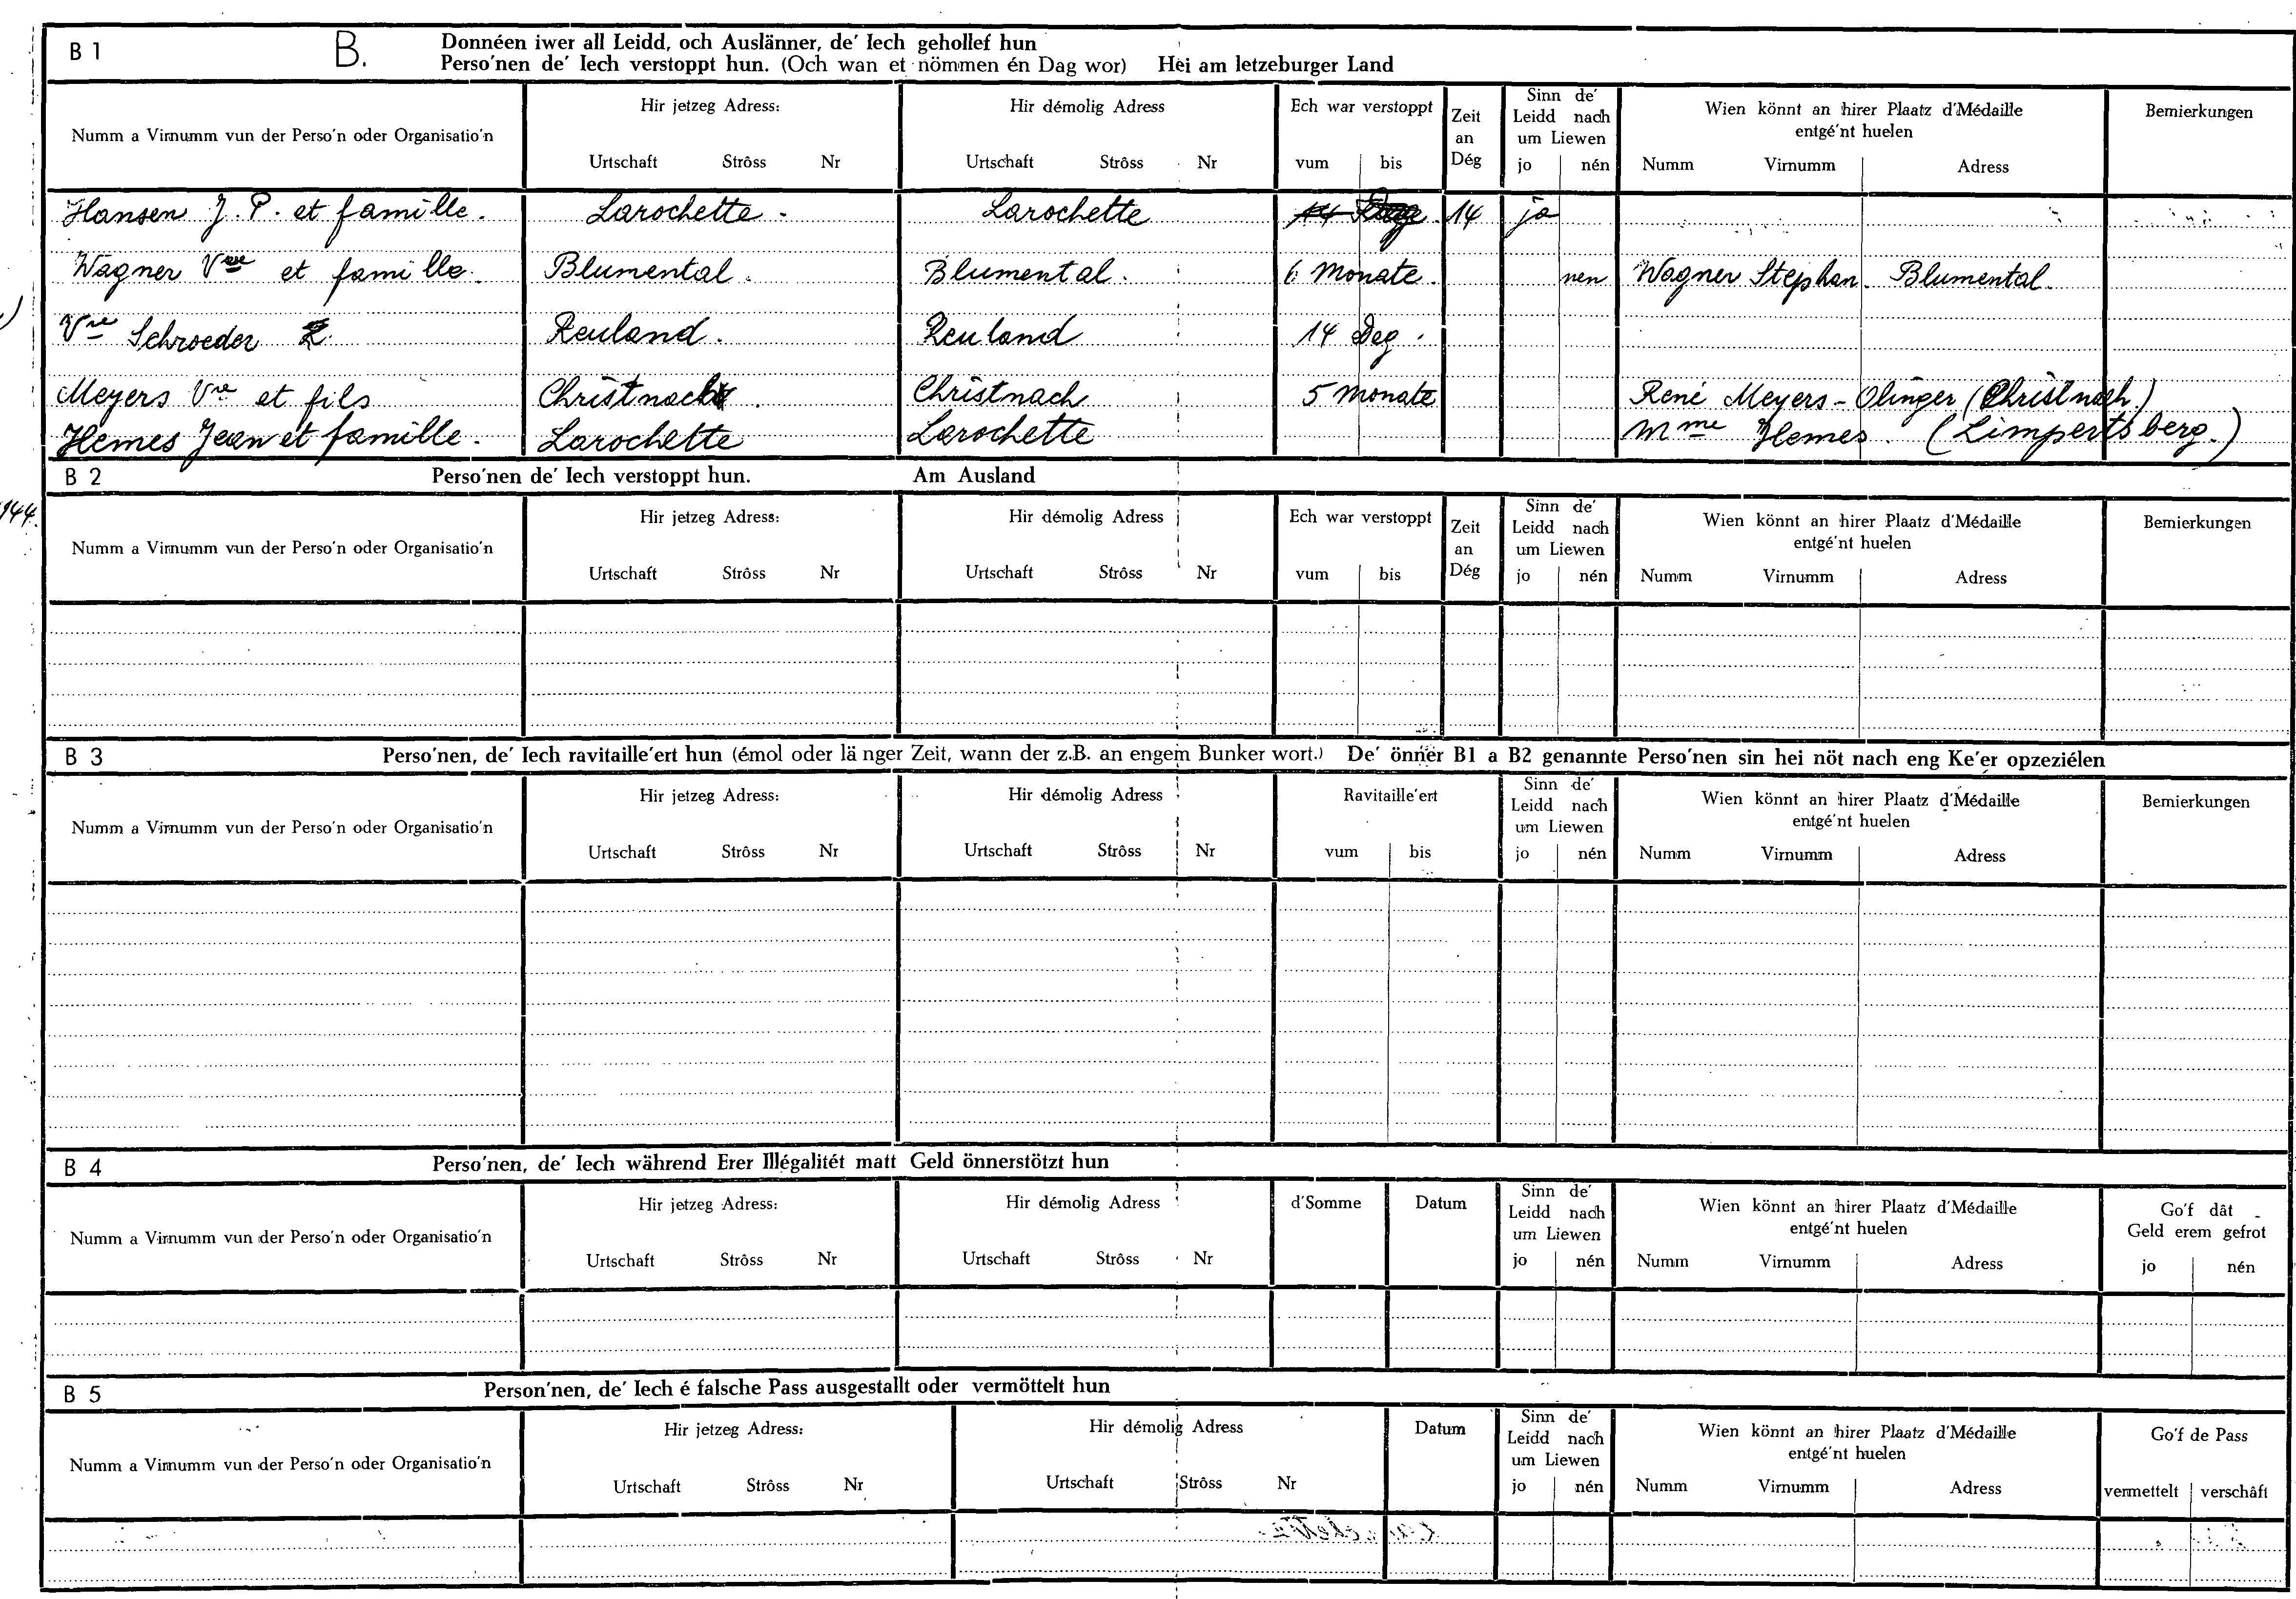 B 1 B. Donnéen iwer all Leidd, och Auslänner, de' Iech gehollef hun
Perso'nen de' Iech verstoppt hun. (Och wan et nömmen én Dag wor) Hei am letzeburger Land
Numm a Virnumm vun der Perso'n oder Organisatio'n
Hir jetzeg Adress:
Urtschaft Strôss Nr
Hir démolig Adress
Urtschaft Strôss Nr
Ech war verstoppt
vum bis
Zeit
an
Dég
Sinn de'
Leidd nach
um Liewen
jo nén
Wien könnt an hirer Plaatz d'Médaille
entgé'nt huelen
Numm Virnumm Adress
Bemierkungen
Hansen J. P. et famille. Larochette. Larochette 14 jo
Wagner Vve et famille. Blumental. Blumental. 6 Monate. nen Wagner Stephan. Blumental.
Vve Schroeder Reuland. Reuland 14 Deg.
Meyers Vve et fils Christnach. Christnach 5 Monate René Meyers-Olinger (Christnach)
Hemes Jean et famille. Larochette Larochette Mme Hemes. (Limpertsberg.)
144.
B 2 Perso'nen de' Iech verstoppt hun. Am Ausland
Numm a Virnumm vun der Perso'n oder Organisatio'n
Hir jetzeg Adress:
Urtschaft Strôss Nr
Hir démolig Adress
Urtschaft Strôss Nr
Ech war verstoppt
vum bis
Zeit
an
Dég
Sinn de'
Leidd nach
um Liewen
jo nén
Wien könnt an hirer Plaatz d'Médaille
entgé'nt huelen
Numm Virnumm Adress
Bemierkungen
B 3 Perso'nen, de' Iech ravitaille'ert hun (émol oder länger Zeit, wann der z.B. an engem Bunker wort.) De' önner B1 a B2 genannte Perso'nen sin hei nöt nach eng Ke'er opzeziélen
Numm a Virnumm vun der Perso'n oder Organisatio'n
Hir jetzeg Adress:
Urtschaft Strôss Nr
Hir démolig Adress
Urtschaft Strôss Nr
Ravitaille'ert
vum bis
Sinn de'
Leidd nach
um Liewen
jo nén
Wien könnt an hirer Plaatz d'Médaille
entgé'nt huelen
Numm Virnumm Adress
Bemierkungen
B 4 Perso'nen, de' Iech während Erer Illégalitét matt Geld önnerstötzt hun
Numm a Virnumm vun der Perso'n oder Organisatio'n
Hir jetzeg Adress:
Urtschaft Strôss Nr
Hir démolig Adress
Urtschaft Strôss Nr
d'Somme
Datum
Sinn de'
Leidd nach
um Liewen
jo nén
Wien könnt an hirer Plaatz d'Médaille
entgé'nt huelen
Numm Virnumm Adress
Go'f dât
Geld erem gefrot
jo nén
B 5 Person'nen, de' Iech é falsche Pass ausgestallt oder vermöttelt hun
Numm a Virnumm vun der Perso'n oder Organisatio'n
Hir jetzeg Adress:
Urtschaft Strôss Nr
Hir démolig Adress
Urtschaft Strôss Nr
Datum
Sinn de'
Leidd nach
um Liewen
jo nén
Wien könnt an hirer Plaatz d'Médaille
entgé'nt huelen
Numm Virnumm Adress
Go'f de Pass
vermettelt verschâft